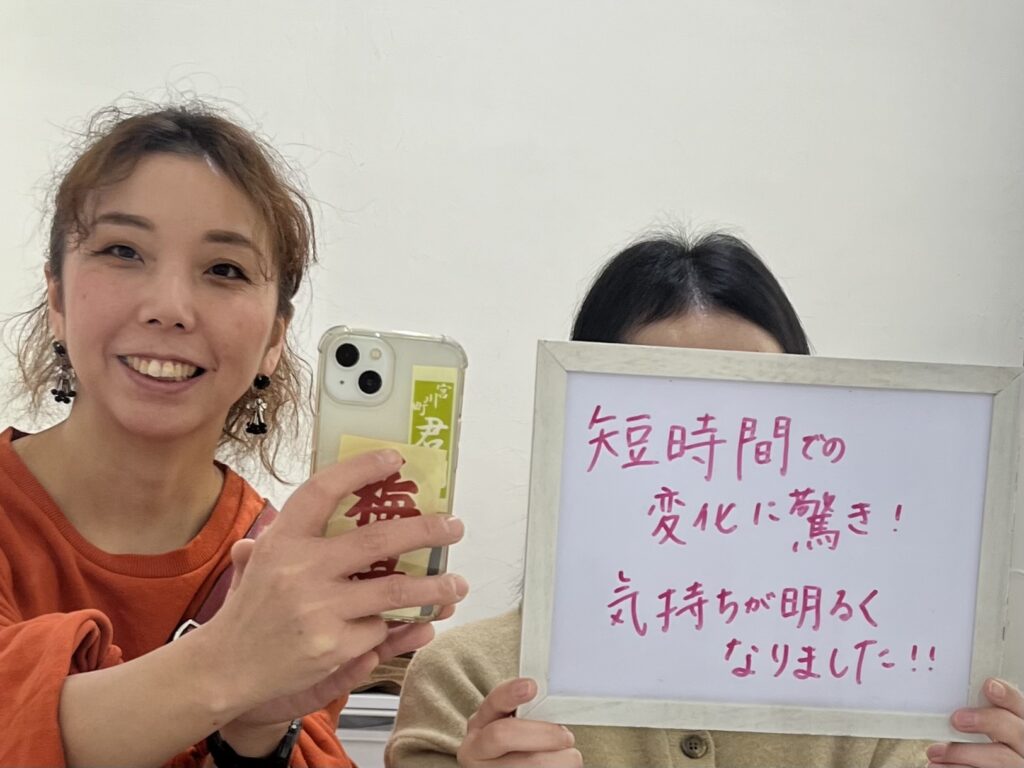 短時間での
変化に驚き!
気持ちが明るく
なりました!!
宮川町
君
梅